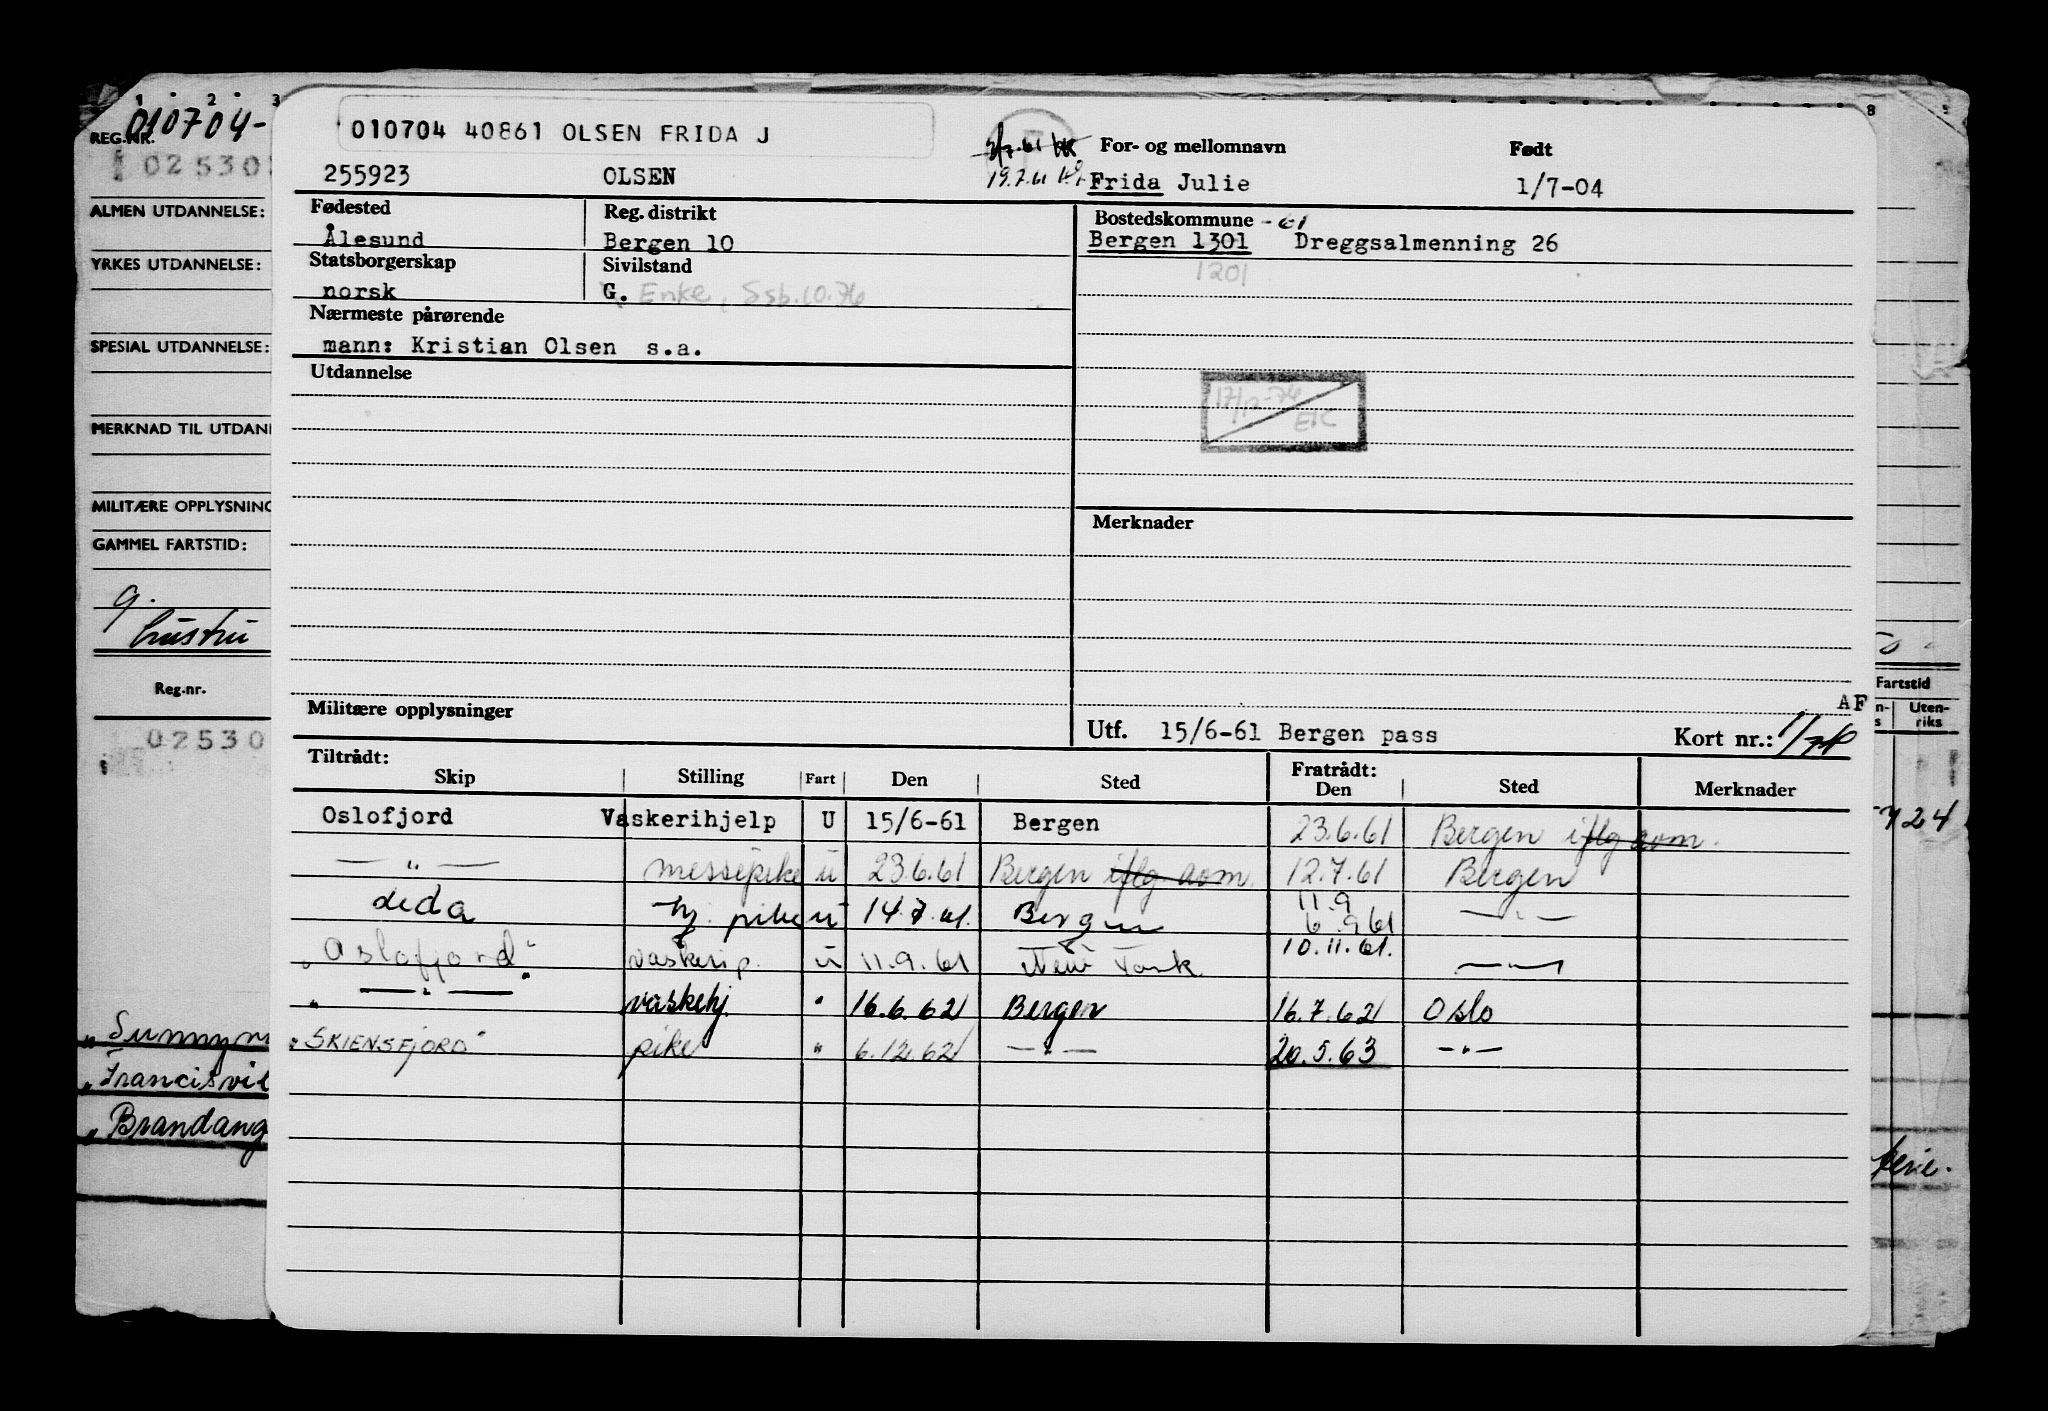 010704-
REG.NR.
02530
ALMEN UTDANNELSE:
YRKES UTDANNELSE:
SPESIAL UTDANNELSE:
MERKNAD TIL UTDAN
MILITÆRE OPPLYSNING
GAMMEL FARTSTID:
g.
hustru
Reg.nr.
02530
„Sunnym
„Francisvil
„Brandang
010704 40861 OLSEN FRIDA J
255923 OLSEN
19.7.61
For- og mellomnavn Født
Frida Julie 1/7-04
Fødested Reg. distrikt Bostedskommune -61
Ålesund Bergen 10 Bergen 1301 Dreggsalmenning 26
1201
Statsborgerskap Sivilstand
norsk G. Enke, Ssb.10.76
Nærmeste pårørende
mann: Kristian Olsen s.a.
Utdannelse
17/12-76
EK
Merknader
Militære opplysninger
AF
Utf. 15/6-61 Bergen pass Kort nr.: 1/
Tiltrådt: Fratrådt:
Skip Stilling Fart Den Sted Den Sted Merknader
Oslofjord Vaskerihjelp U 15/6-61 Bergen 23.6.61 Bergen iflg aom.
— " — messepike u 23.6.61 Bergen iflg. aom. 12.7.61 Bergen
11.9
dida hj. pike u 14.7.61. Bergen 6.9.61 — " —
„Oslofjord" vaskerip. u 11.9.61 New York 10.11.61. — " —
„ — " — " vaskehj. " 16.6.62 Bergen 16.7.62 Oslo
„SKIENSFJORD" pike " 6.12.62 — " — 20.5.63 — " —
8
Fartstid
Uten-
riks
7 24
ferie.